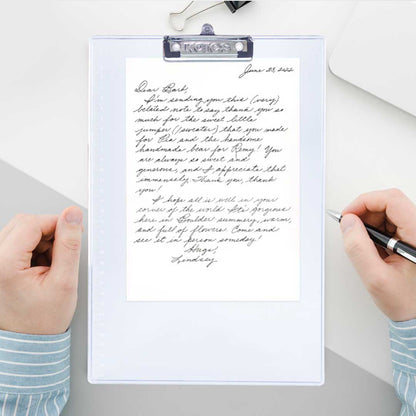 NOTES
June 27, 2022
Dear Barb,
I'm sending you this (very)
belated note to say thank you so
much for the sweet little
jumper (/sweater) that you made
for Ela and the handsome
handmade bear for Remy! You
are always so sweet and
generous, and I appreciate that
immensely. Thank you, thank
you!
I hope all is well in your
corner of the world. It's gorgeous
here in Boulder summery, warm,
and full of flowers. Come and
see it in person someday!
Hugs,
Lindsey